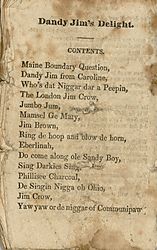 Dandy Jim's Delight.
CONTENTS.
Maine Boundary Question,
Dandy Jim from Caroline,
Who's dat Niggar dar a Peepin,
The London Jim Crow,
Jumbo Jum,
Mamsel Ge Mary,
Jim Brown,
Ring de hoop and blow de horn,
Eberlinah,
Do come along ole Sandy Boy,
Sing Darkies Sing,
Phillisee Charcoal,
De Singin Nigga ob Ohio,
Jim Crow,
Yaw yaw or de niggar of Communipaw